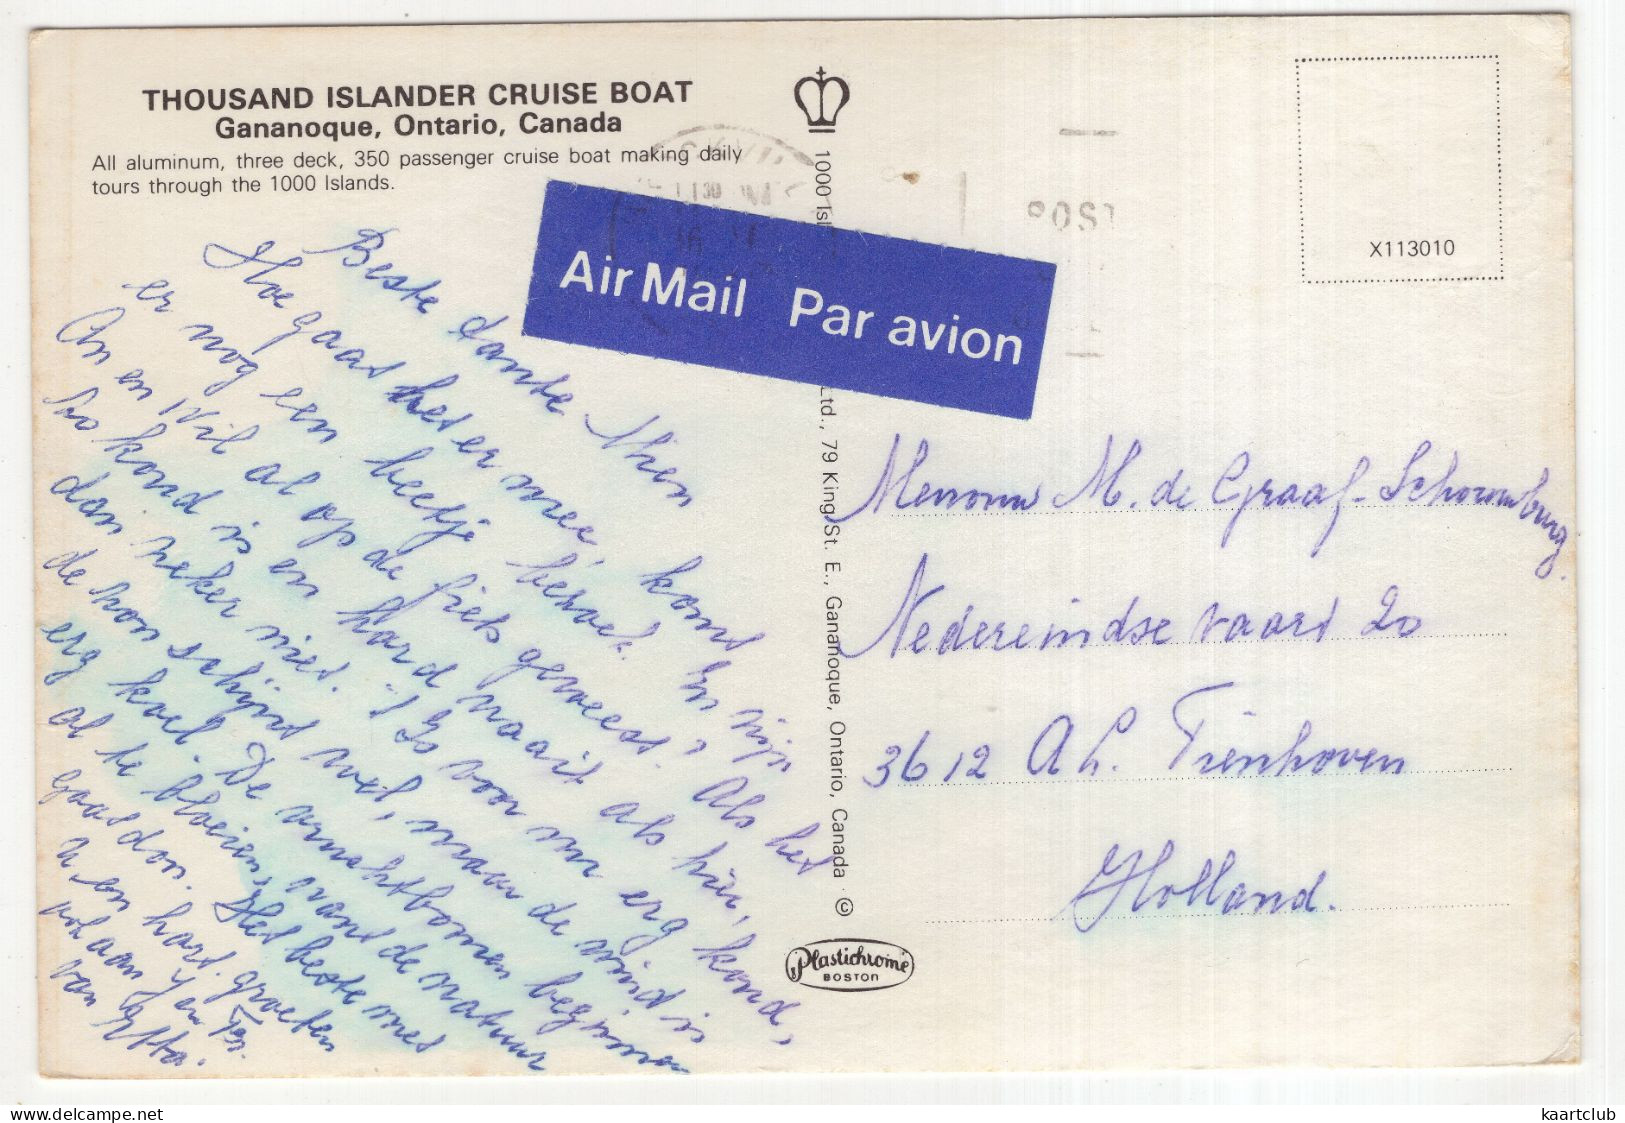 THOUSAND ISLANDER CRUISE BOAT
Gananoque, Ontario, Canada
All aluminum, three deck, 350 passenger cruise boat making daily
tours through the 1000 Islands.
Air Mail Par avion
Beste tante Mien
Hoe gaat het er mee, komt
er nog een beetje bezoek. En zijn
An en Wil al op de fiets geweest. Als het
zo koud is en hard waait als hier,
dan zeker niet. Is voor nu erg koud,
de zon schijnt wel, maar de wind is
erg koel. De vruchtbomen beginnen
al te bloeien, want de natuur
gaat door. Het beste met
u en hart. groeten
ook aan J en Ton.
van Etta.
1000 Isl
Ltd., 79 King St. E., Gananoque, Ontario, Canada ©
Plastichrome
BOSTON
X113010
Mevrouw M. de Graaf-Schoremburg.
Nedereindse vaart 20
3612 A L. Tienhoven
Holland.
kaartclub